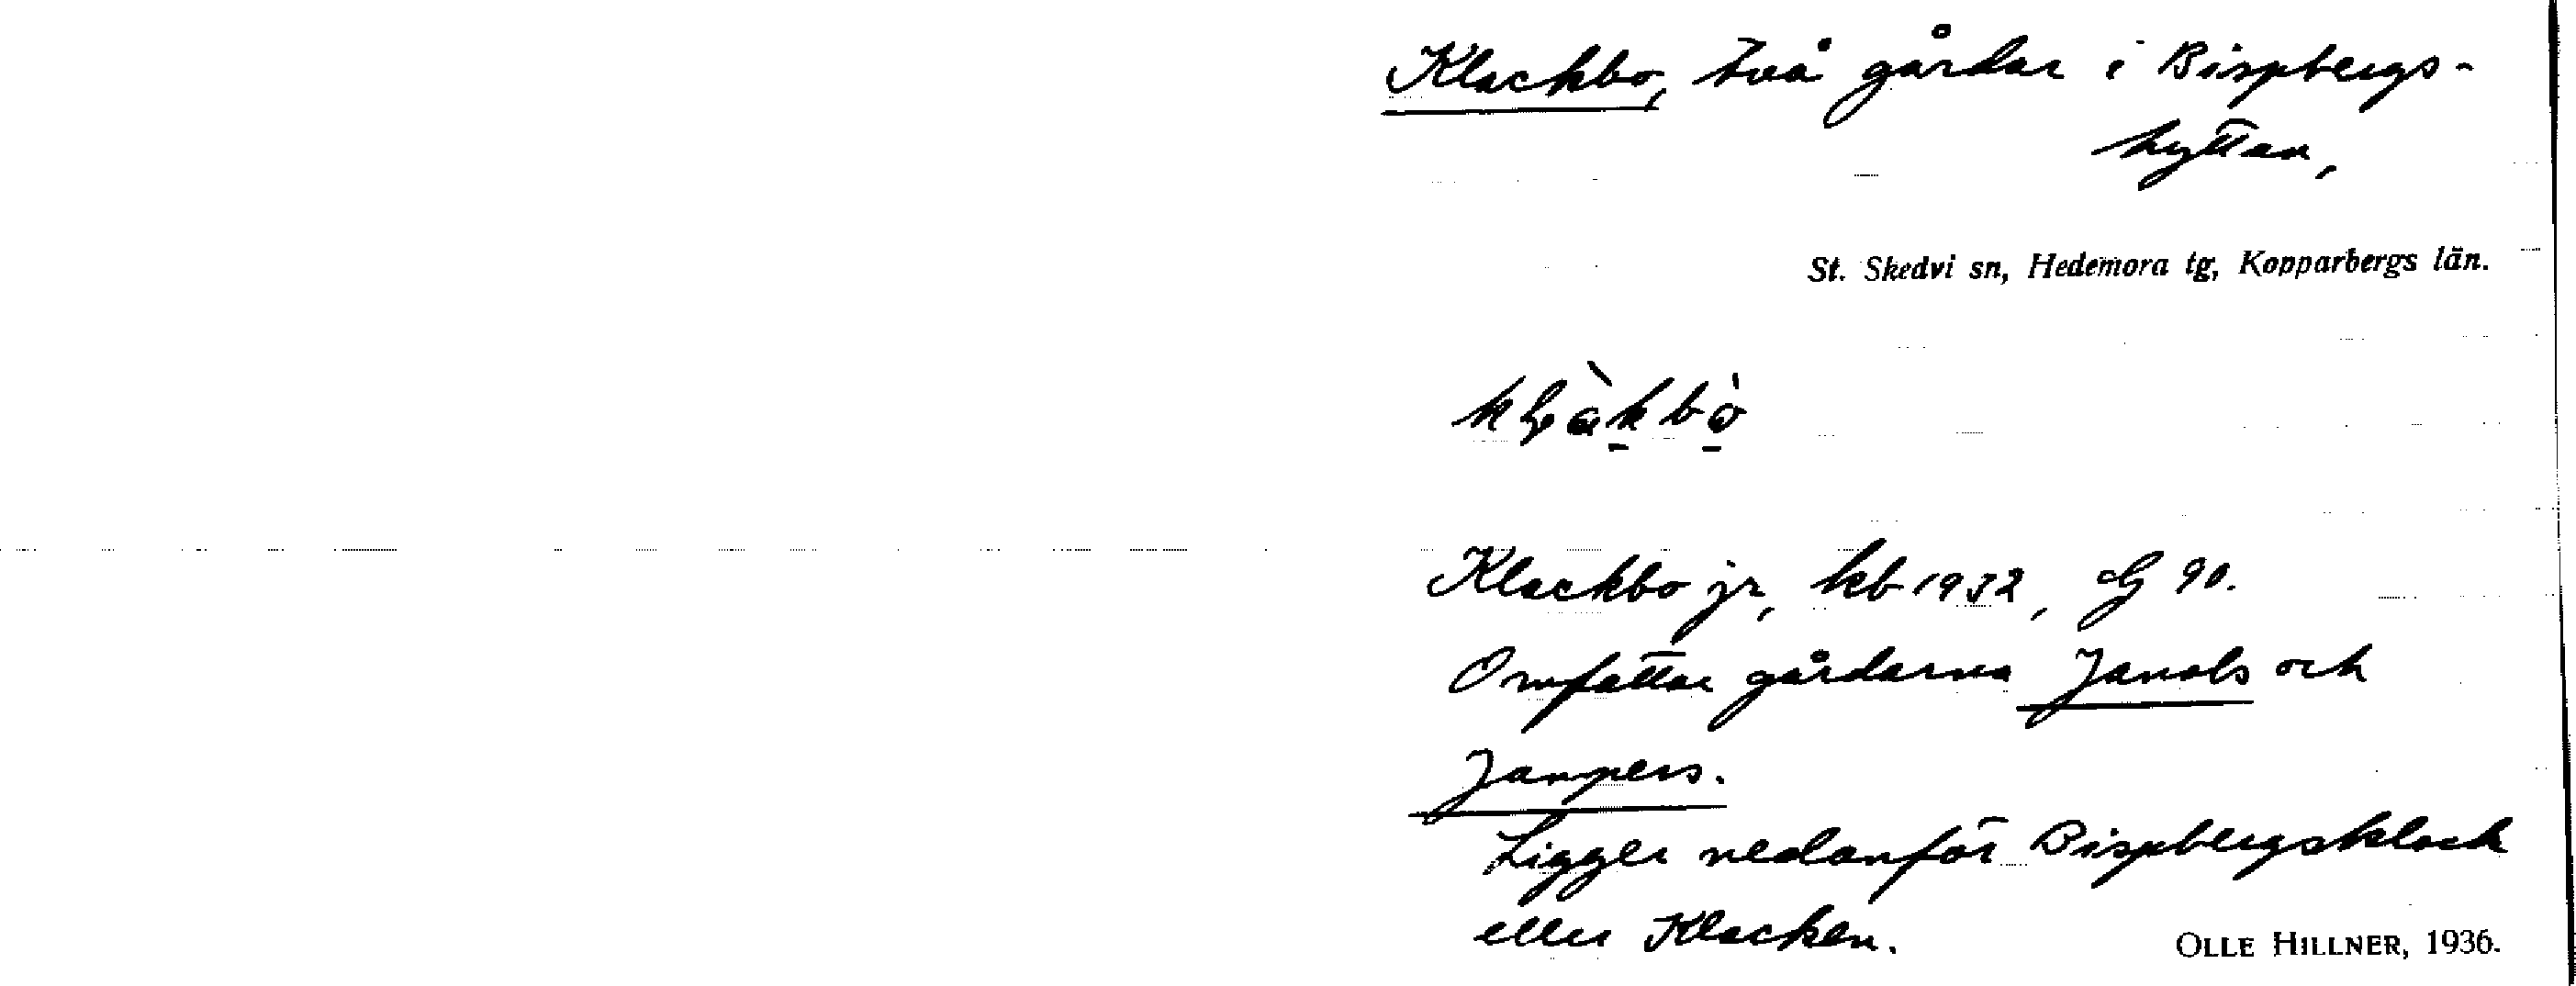 Klackbo, två gårdar i Bispbergs-
hyttan,
St. Skedvi sn, Hedemora tg, Kopparbergs län.
Klackbo jr, kb 1932,
Omfattar gårdarna Janols och
Janpers.
Ligger nedanför Bispbergsklack
eller Klacken.
OLLE HILLNER, 1936.